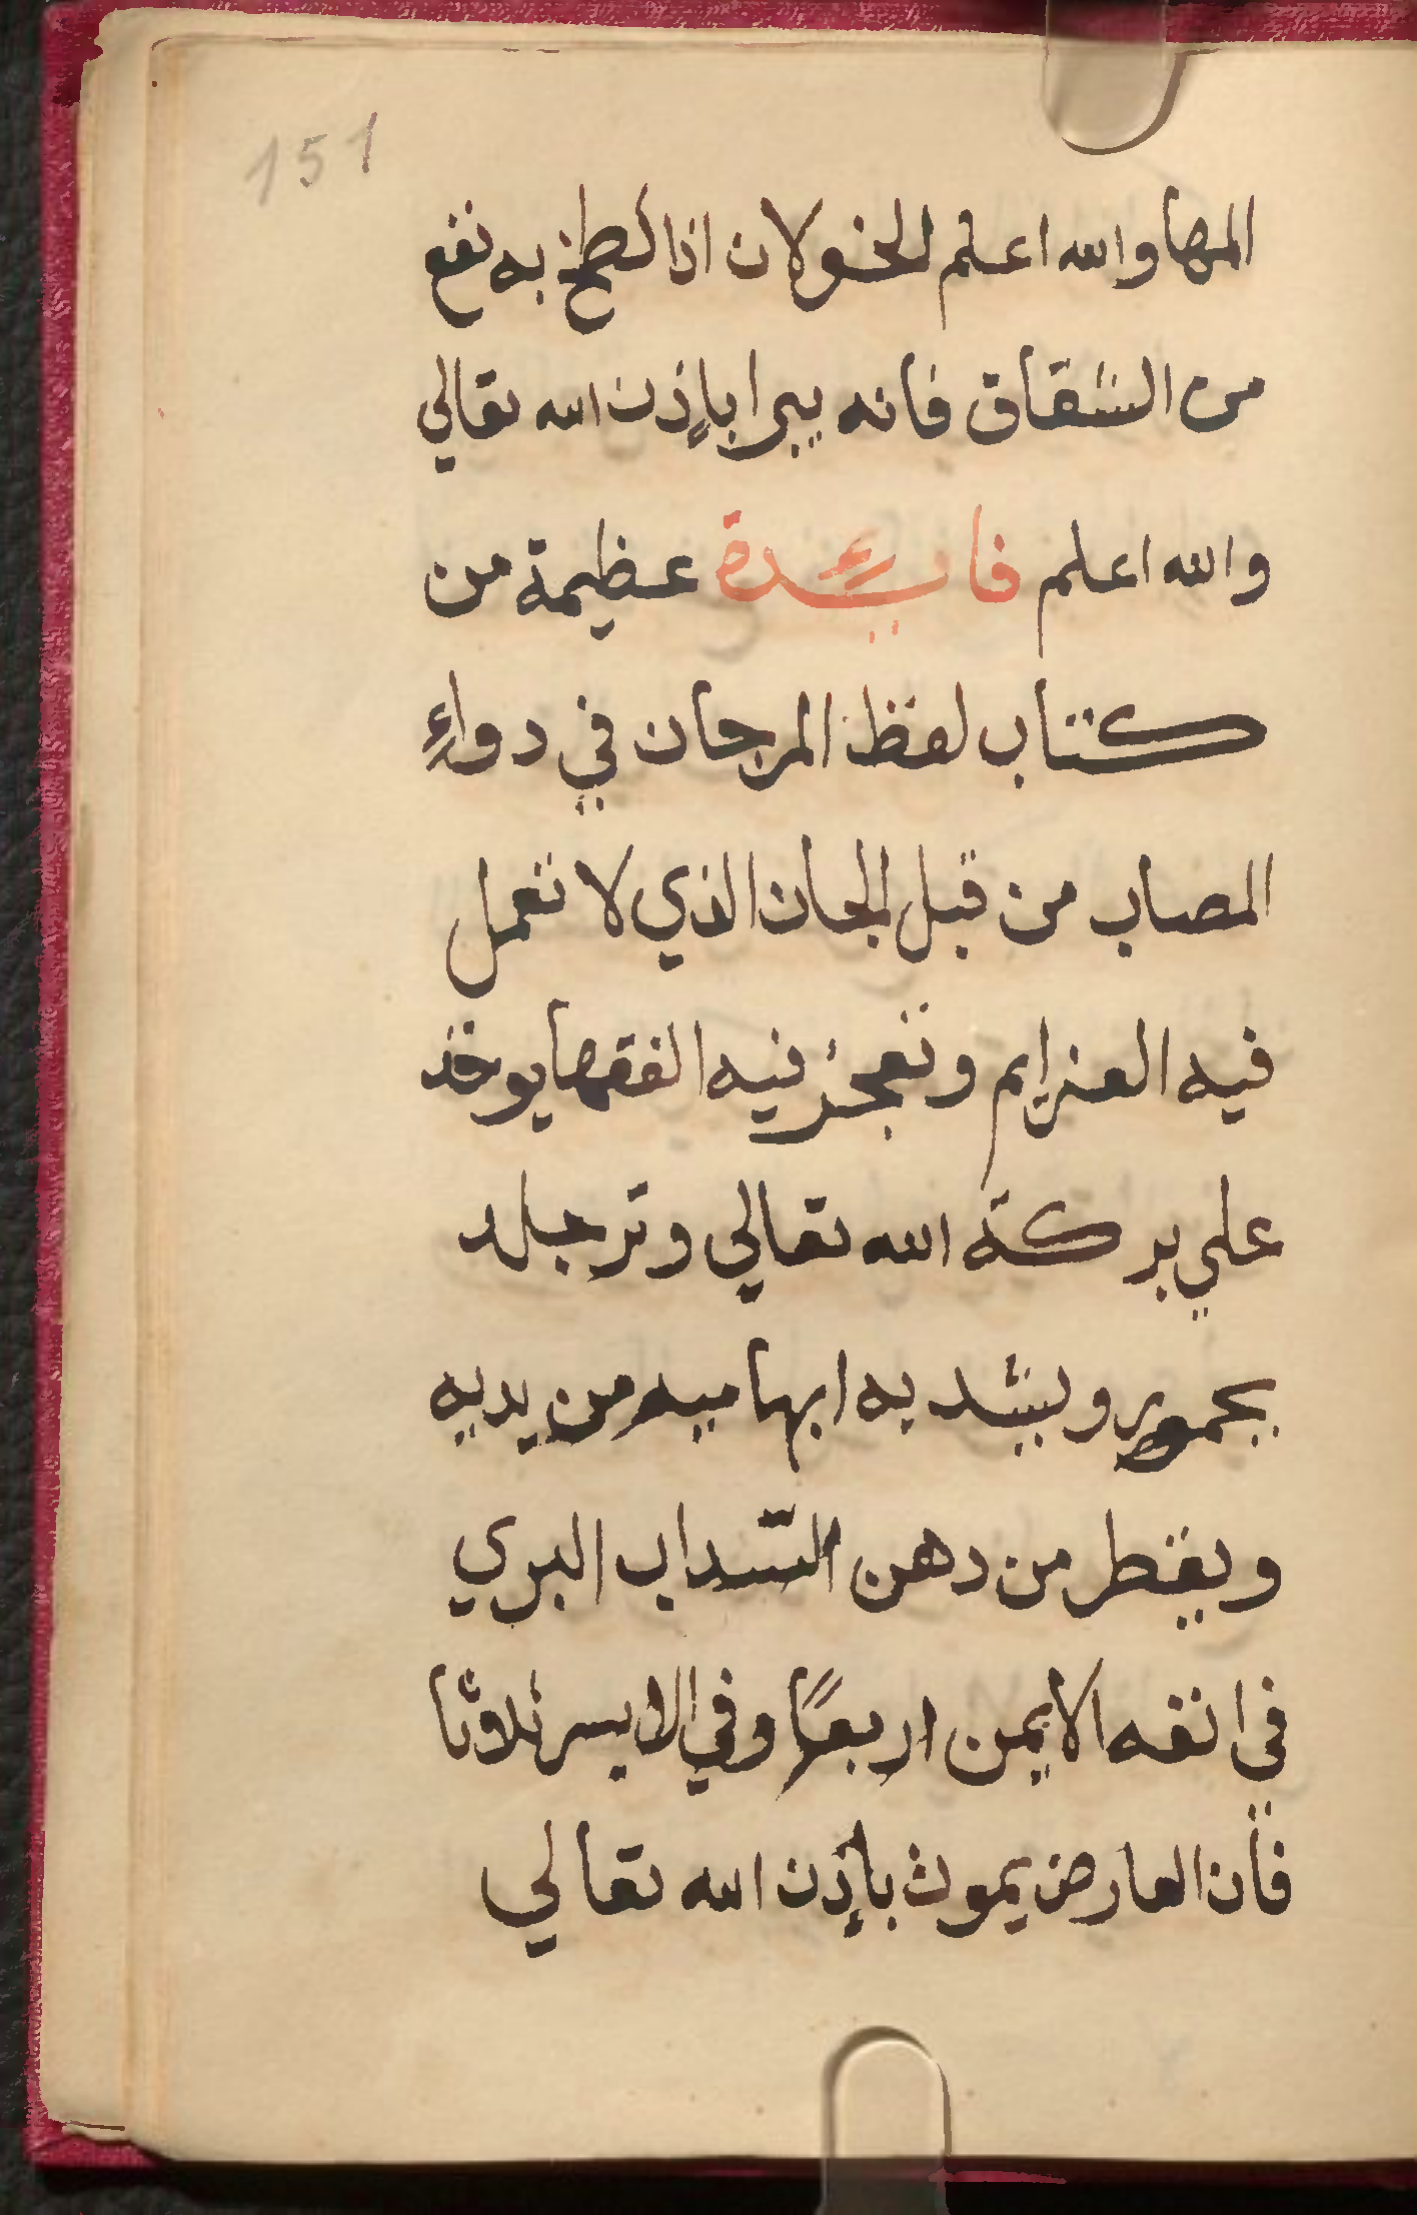 151
المها والله اعلم الخولان اذا لطخ به نفع
من الشقاق فانه يبرا باذن الله تعالي
والله اعلم فائدة عظيمة من
كتاب لفظ المرجان في دواءِ
المصاب من قبل الجان الذي لا تعمل
فيه العزايم وتعجز فيه الفقها يوخذ
علي بركة الله تعالي وتر جلد
ويشد به ابهاميه من يديه
ويقطر من دهن السّداب البري
في انفه الايمن اربعًا وفي الايسر ثلاثا
فان العارض يموت باذن الله تعالي